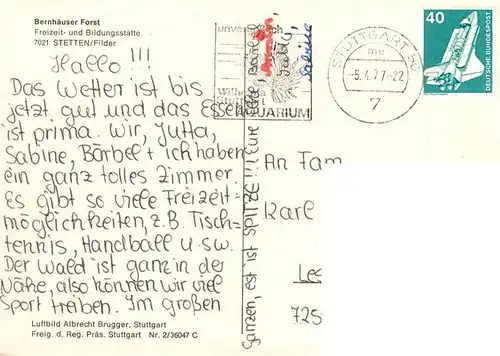 Bernhäuser Forst
Freizeit- und Bildungsstätte
7021 STETTEN/Filder
Hallo!!!
Das Wetter ist bis
jetzt gut und das Essen
ist prima. Wir, Jutta,
Sabine, Bärbel + ich haben
ein ganz tolles Zimmer.
Es gibt so viele Freizeit-
möglichkeiten, z.B. Tisch-
tennis, Handball usw.
Der Wald ist ganz in der
Nähe, also können wir viel
Sport treiben. Im großen
Ganzen, est ist SPITZE!!! Eure
Sabine
Luftbild Albrecht Brugger, Stuttgart
Freig. d. Reg. Präs. Stuttgart Nr. 2/36047 C
STUTTGART 50
-5.4.77-22
7
40
DEUTSCHE BUNDESPOST
An Fam
Karl
Les
725